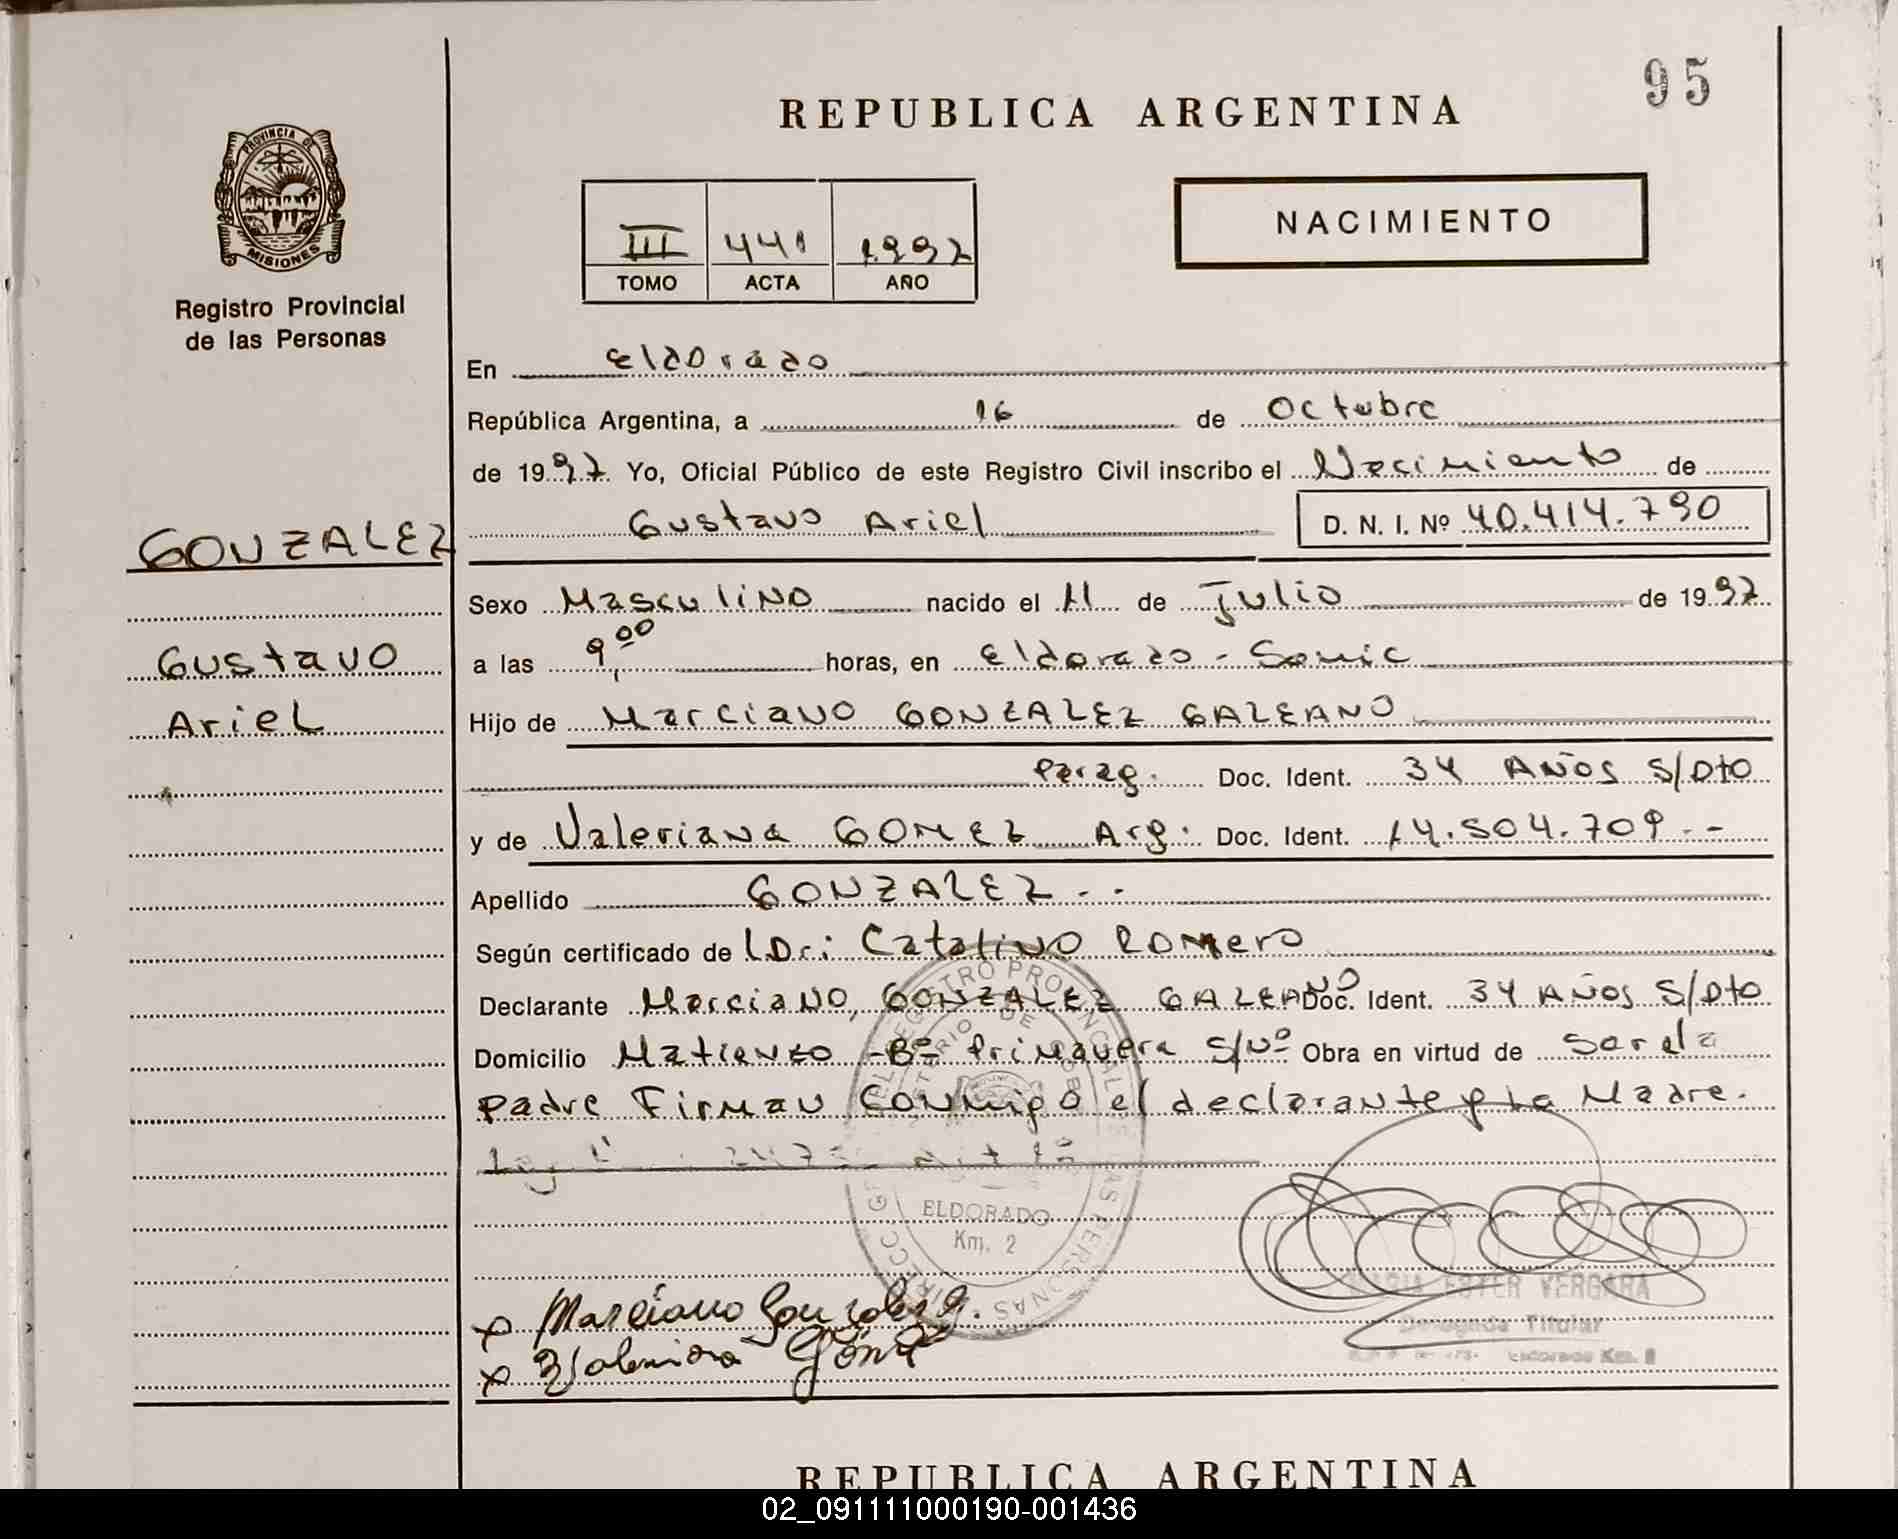 95
REPUBLICA ARGENTINA
PROVINCIA DE
MISIONES
Registro Provincial
de las Personas
III 441 1997
TOMO ACTA AÑO
NACIMIENTO
En Eldorado
República Argentina, a 16 de Octubre
de 1997 Yo, Oficial Público de este Registro Civil inscribo el Nacimiento de
Gustavo Ariel D. N. I. Nº 40.414.790
GONZALEZ
Gustavo
Ariel
Sexo Masculino nacido el 11 de Julio de 1997
a las 9,00 horas, en Eldorado - Samic
Hijo de Marciano GONZALEZ GALEANO
Parag. Doc. Ident. 34 AÑOS S/Dto
y de Valeriana GOMEZ Arg. Doc. Ident. 14.504.709.-
Apellido GONZALEZ.-
Según certificado de Dr: Catalino Romero
Declarante Marciano, GONZALEZ GALEANO Doc. Ident. 34 AÑOS S/Dto
Domicilio Matienzo - Bº Primavera S/Nº Obra en virtud de Ser el
padre Firman Conmigo el declarante y la Madre.
ELDORADO
Km. 2
x Marciano Gonzalez G.
x Valeriana Gómez
MARIA ESTER VERGARA
Delegada Titular
Eldorado Km. 2
REPUBLICA ARGENTINA
02_091111000190-001436